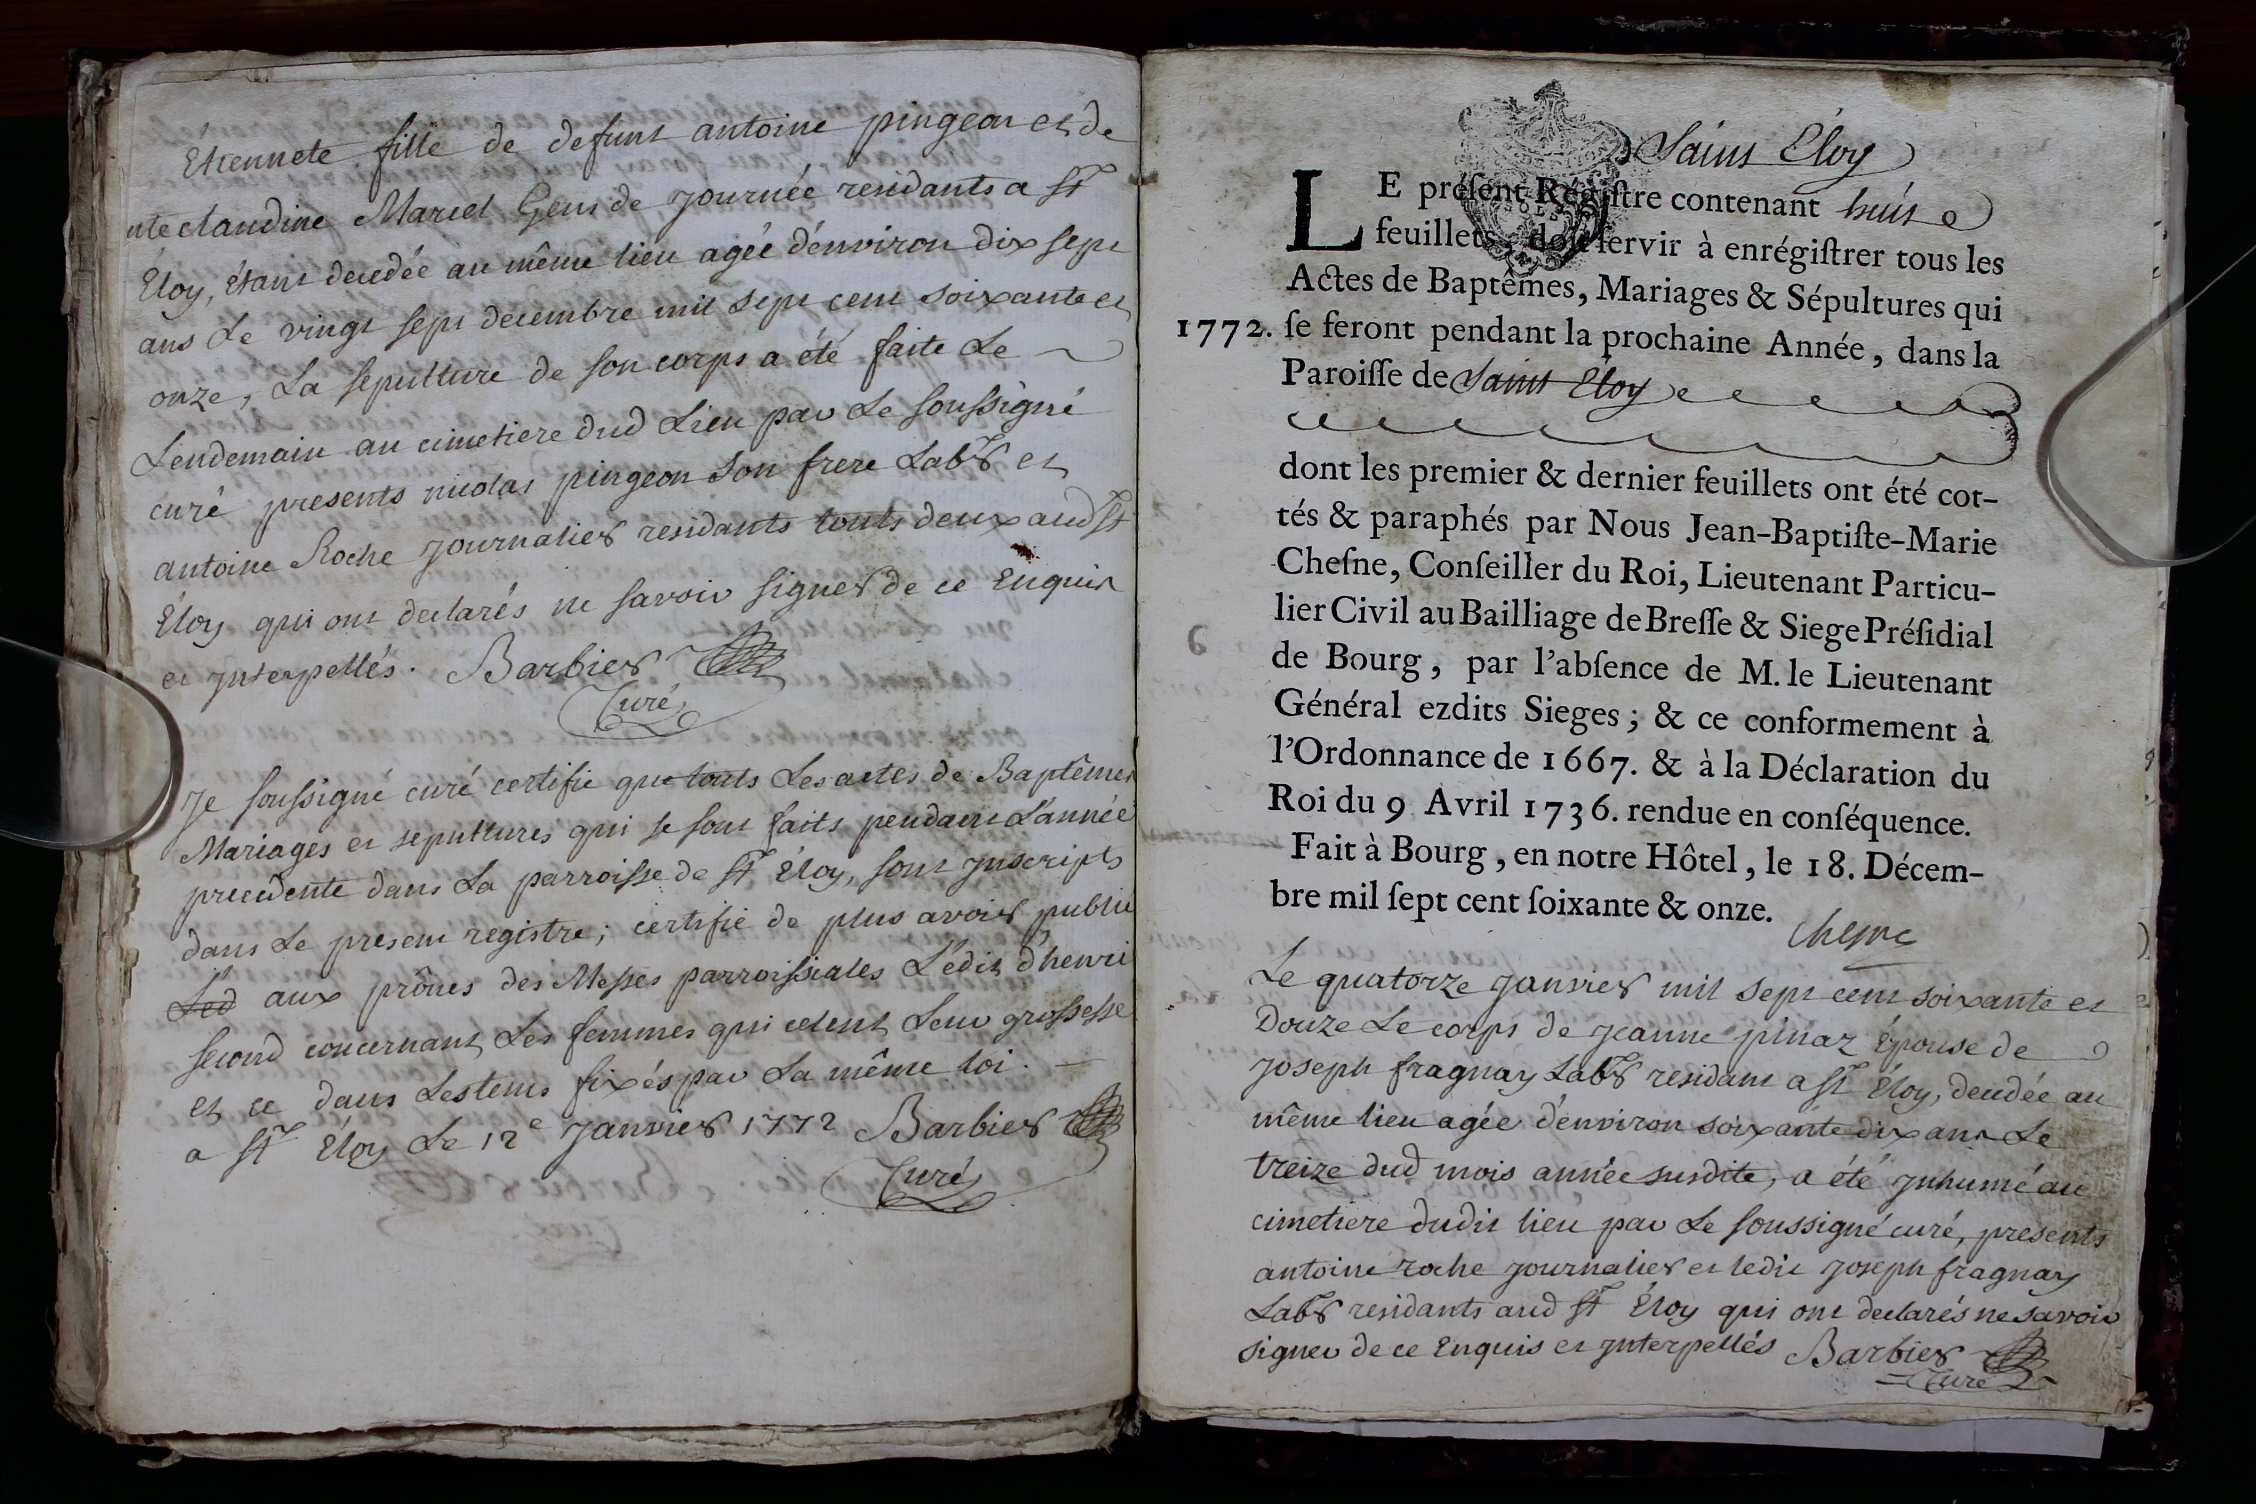 Étiennete fille de defunt antoine pingeon et de
claudine Mariel Gens de journée residants a St
Éloy, étant decedée au même lieu agée d'environ dix sept
ans Le vingt sept decembre mil sept cent soixante et
onze, La sepulture de son corps a été faite Le
Lendemain au cimetiere dud Lieu par Le soussigné
curé presents nicolas pingeon son frere Labr et
antoine Roche journalier residants touts deux aud St
Éloy qui ont declarés ne savoir signer de ce Enquis
et jnterpellés. Barbier
Curé
Je soussigné curé certifie que touts Les actes de Baptêmes
Mariages et sepultures qui se sont faits pendant L'année
precedente dans La parroisse de St Éloy, sont jnscripts
dans Le present registre; certifie de plus avoir publié
Led aux prônes des Messes parroissiales L'édit d'henri
second concernant Les femmes qui celent Leur grossesse
et ce dans Les tems fixés par La même loi.
a St Éloy Le 12e janvier 1772 Barbier
Curé
Saint Éloy
LE préſent Régiſtre contenant huit
feuillets, doit ſervir à enrégiſtrer tous les
Actes de Baptêmes, Mariages & Sépultures qui
1772. ſe feront pendant la prochaine Année, dans la
Paroiſſe de Saint Eloy
dont les premier & dernier feuillets ont été cot-
tés & paraphés par Nous Jean-Baptiſte-Marie
Cheſne, Conſeiller du Roi, Lieutenant Particu-
lier Civil au Bailliage de Breſſe & Siege Préſidial
de Bourg, par l'abſence de M. le Lieutenant
Général ezdits Sieges; & ce conformement à
l'Ordonnance de 1667. & à la Déclaration du
Roi du 9 Avril 1736. rendue en conſéquence.
Fait à Bourg, en notre Hôtel, le 18. Décem-
bre mil ſept cent ſoixante & onze.
Chesne
Le quatorze janvier mil sept cent soixante et
Douze Le corps de jeanne pinaz Épouse de
joseph fragnay Labr residant a St Éloy, decedée au
même lieu agée d'environ soixante dix ans Le
treize dud mois année susdite, a été jnhumé au
cimetiere dudit lieu par Le soussigné curé, presents
antoine roche journalier et ledit joseph fragnay
Labr residants aud St Éloy qui ont declarés ne savoir
signer de ce Enquis et jnterpellés Barbier
Curé